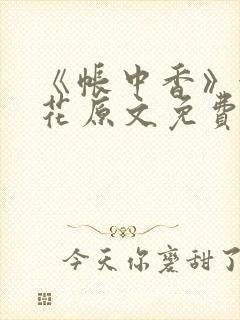 《帐中香》
花原文免费
今天你磨甜了